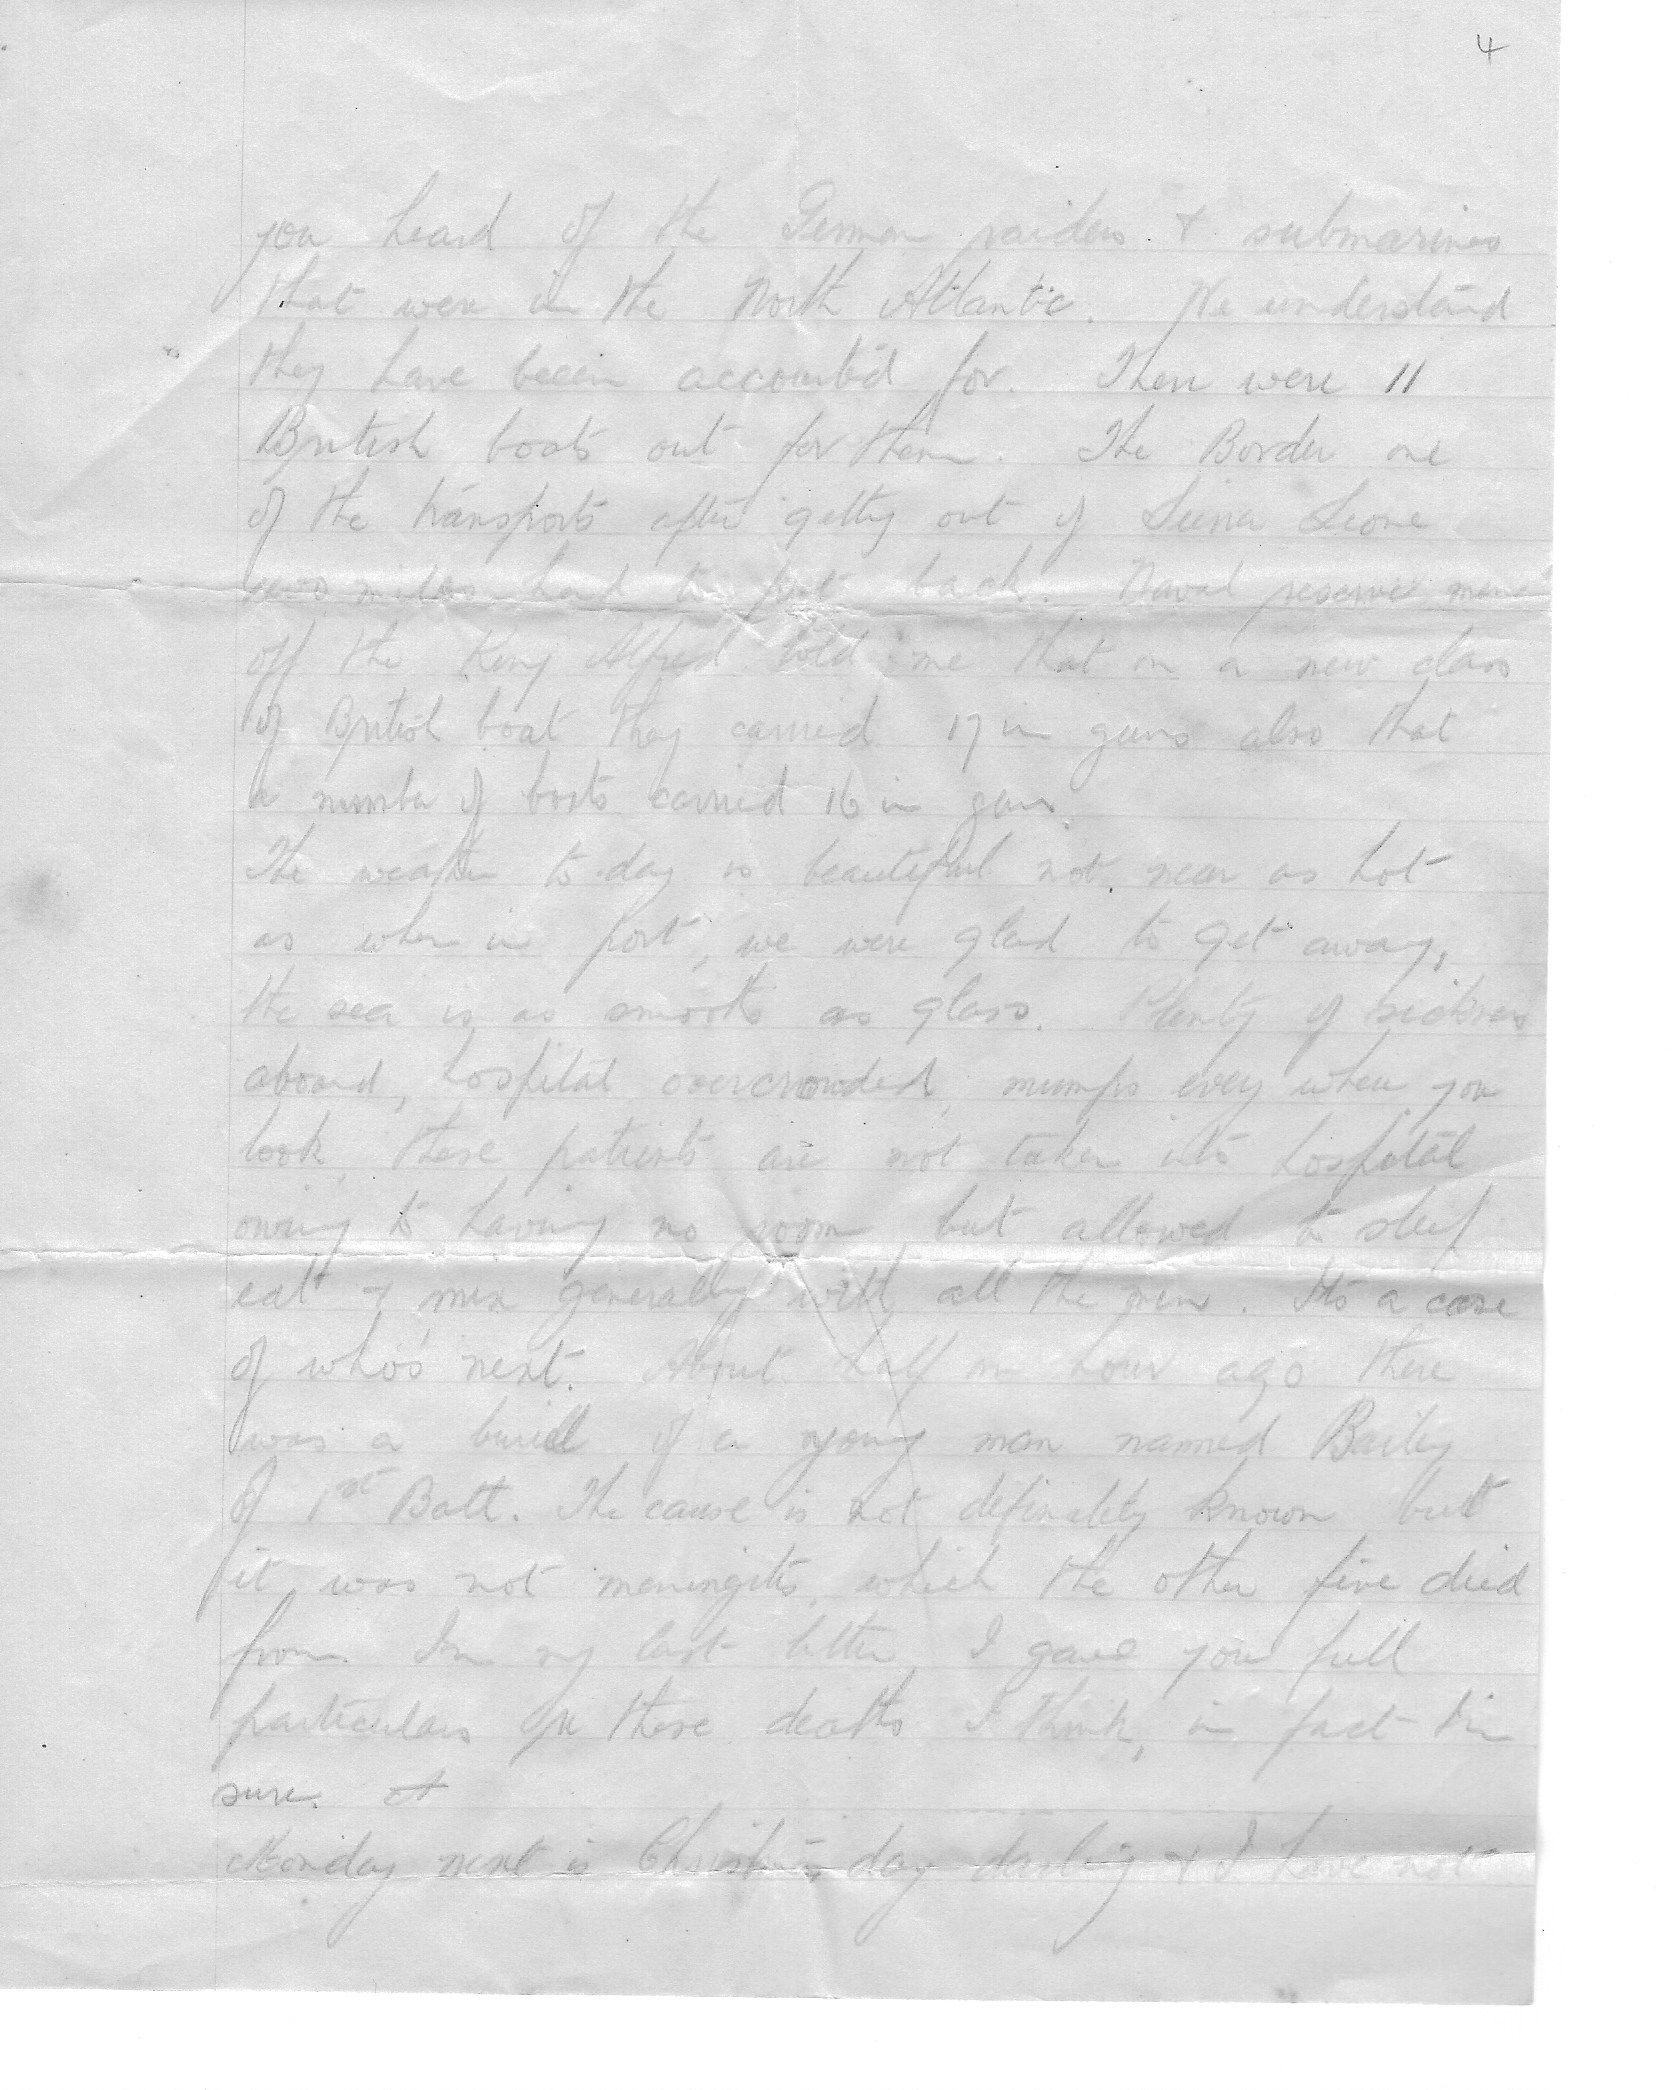 4
you heard of the German raiders & submarines
that were in the North Atlantic. We understand
they have been accounted for. There were 11
British boats out for them. The Border one
of the transports after getting out of Sierra Leone
miles had to put back. Naval reserve men
off the King Alfred told me that on a new class
of British boat they carried 17 in guns also that
a number of boats carried 16 in guns.
The weather to-day is beautiful not near as hot
as when in port, we were glad to get away,
the sea is as smooth as glass. Plenty of sickness
aboard, hospital overcrowded, mumps every where you
look, these patients are not taken into hospital
owing to having no room but allowed to sleep
eat & mix generally with all the men. Its a case
of who's next. About half an hour ago there
was a buriel of a young man named Bailey
of 1st Batt. The cause is not definately known but
it was not meningitis, which the other five died
from. In my last letter I gave you full
particulars these deaths I think, in fact I'm
sure.
Monday next is Christmas day darling & I have not